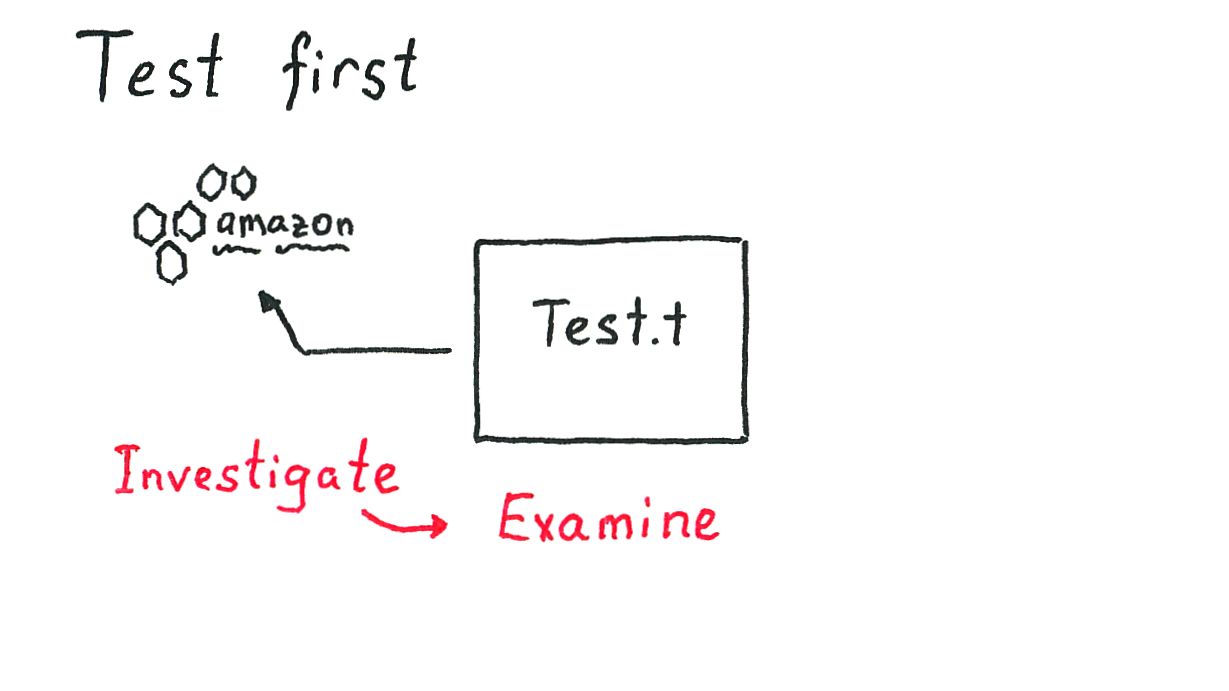 Test first
amazon
Test.t
Investigate
Examine